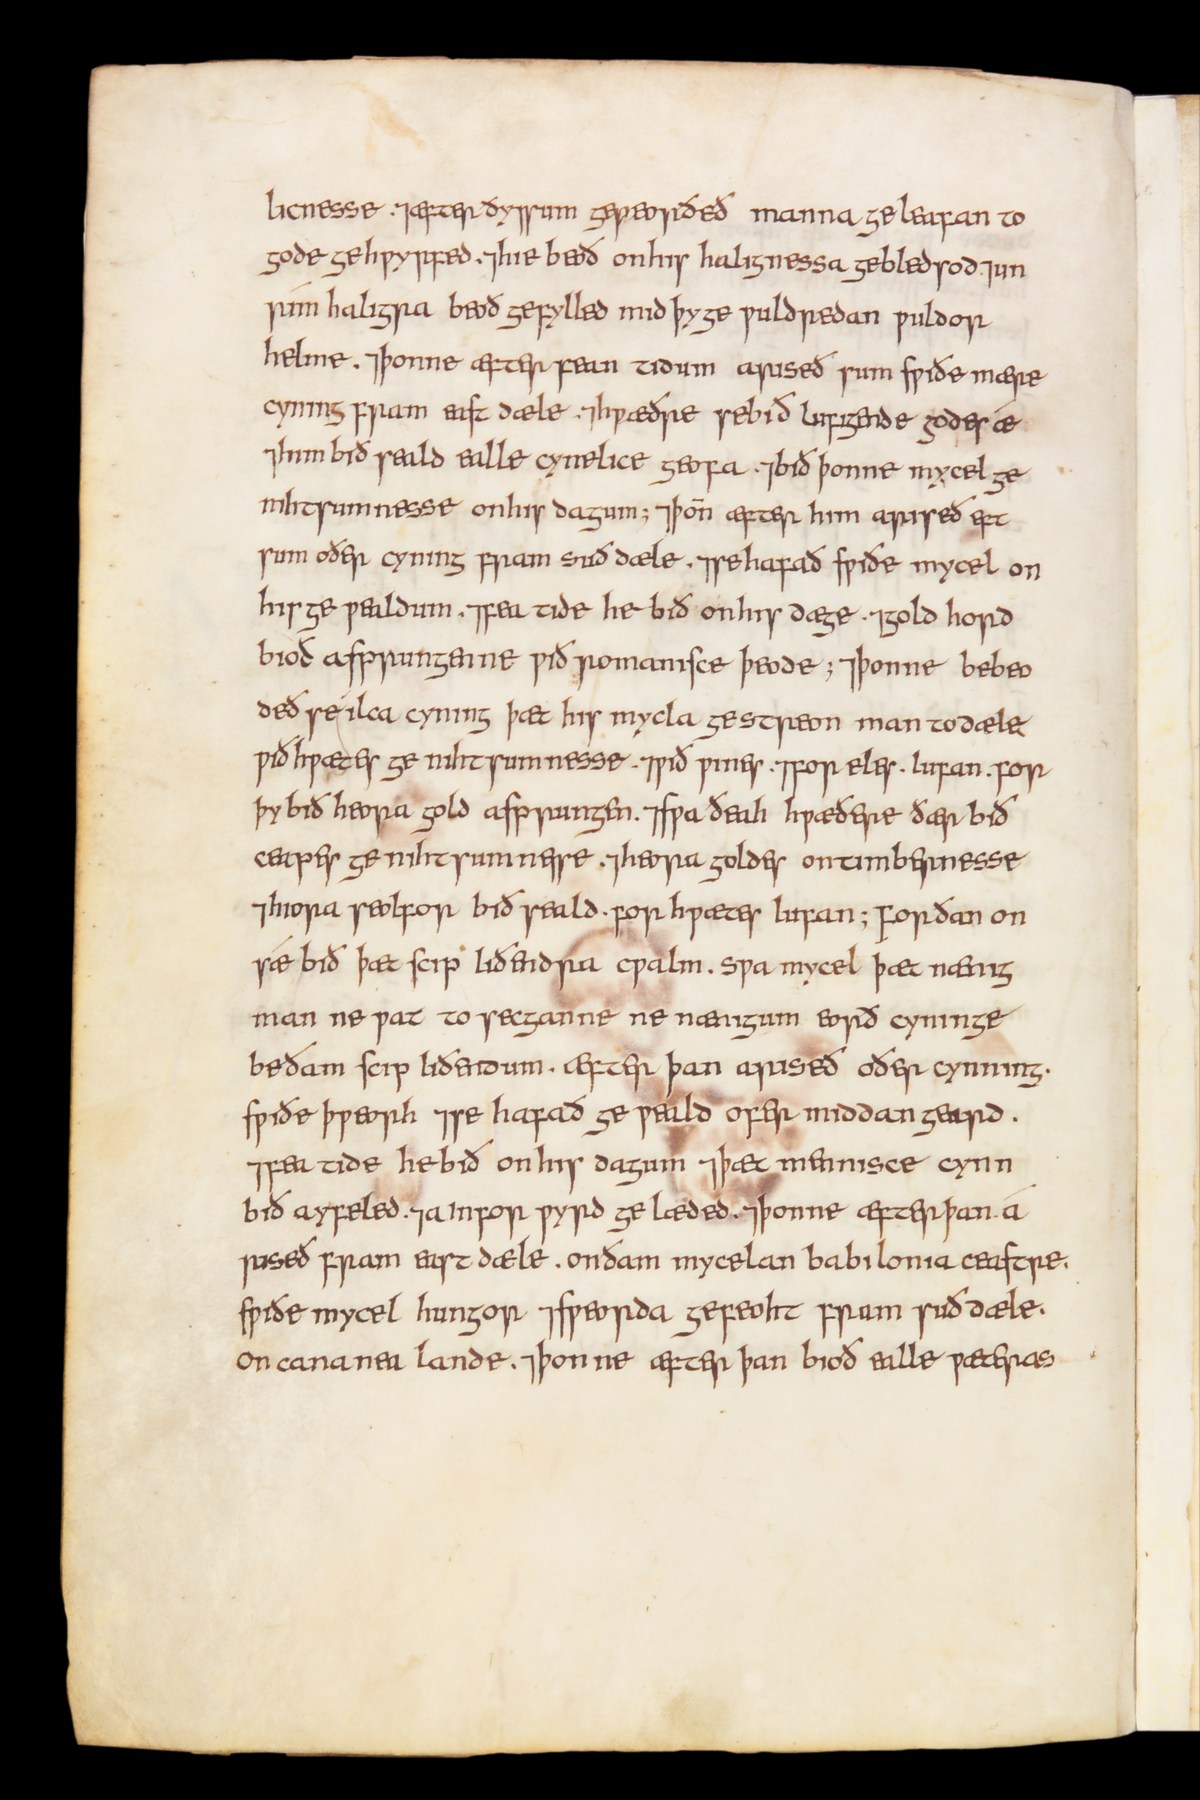 licnesse . ⁊æfter ðyssum geƿeorðeð manna geleafan to
gode gehƿyrfed . ⁊hie beoð onhis halignessa gebledsod . ⁊un
rím haligra beoð gefylled mid þyge ƿuldredan ƿuldor
helme . ⁊þonne æfter fean tidum ariseð sum sƿiðe mære
cyning fram east dæle . ⁊hƿæðre sebið lufigende godes ǽ
⁊him bið seald ealle cynelice geofa . ⁊bið þonne mycel ge
nihtsumnesse onhis dagum ; ⁊þoñ æfter him ariseð eft
sum oðer cyning fram suð dæle . ⁊se hafað sƿiðe mycel on
his ge ƿealdum . ⁊fea tide he bið onhis dæge . ⁊gold hord
bioð asprungenne ƿið romanisce þeode ; ⁊þonne bebeo
deð se ilca cyning þæt his mycla gestreon man todæle
ƿiðhƿætes ge nihtsumnesse . ⁊ƿið ƿines . ⁊for eles . lufan . for
þy bið heora gold asprungen . ⁊sƿa ðeah hƿæðere ðær bið
ceapes ge nihtsumnesse . ⁊heora goldes ontimbernesse
⁊hiora seolfor bið seald . for hƿætes lufan ; Forðan on
sǽ bið þæt scip liðendra cƿalm . sƿa mycel þæt nænig
man ne ƿat to secganne ne nænigum eorð cyninge
beðam scip liðendum . æfter þan ariseð oðer cynning .
sƿiðe þƿeorh ⁊se hafað ge ƿeald ofer middangeard .
⁊fea tide he bið onhis dagum ⁊þæt mennisce cynn
bið ayfeled . ⁊a in for ƿyrd ge læded . ⁊þonne æfterþan á
riseð fram east dæle . onðam mycelan babilonia ceastre .
sƿiðe mycel hungor ⁊sƿeorda gefeoht fram suð dæle .
on cananea lande . ⁊þonne æfter þan bioð ealle ƿæteras